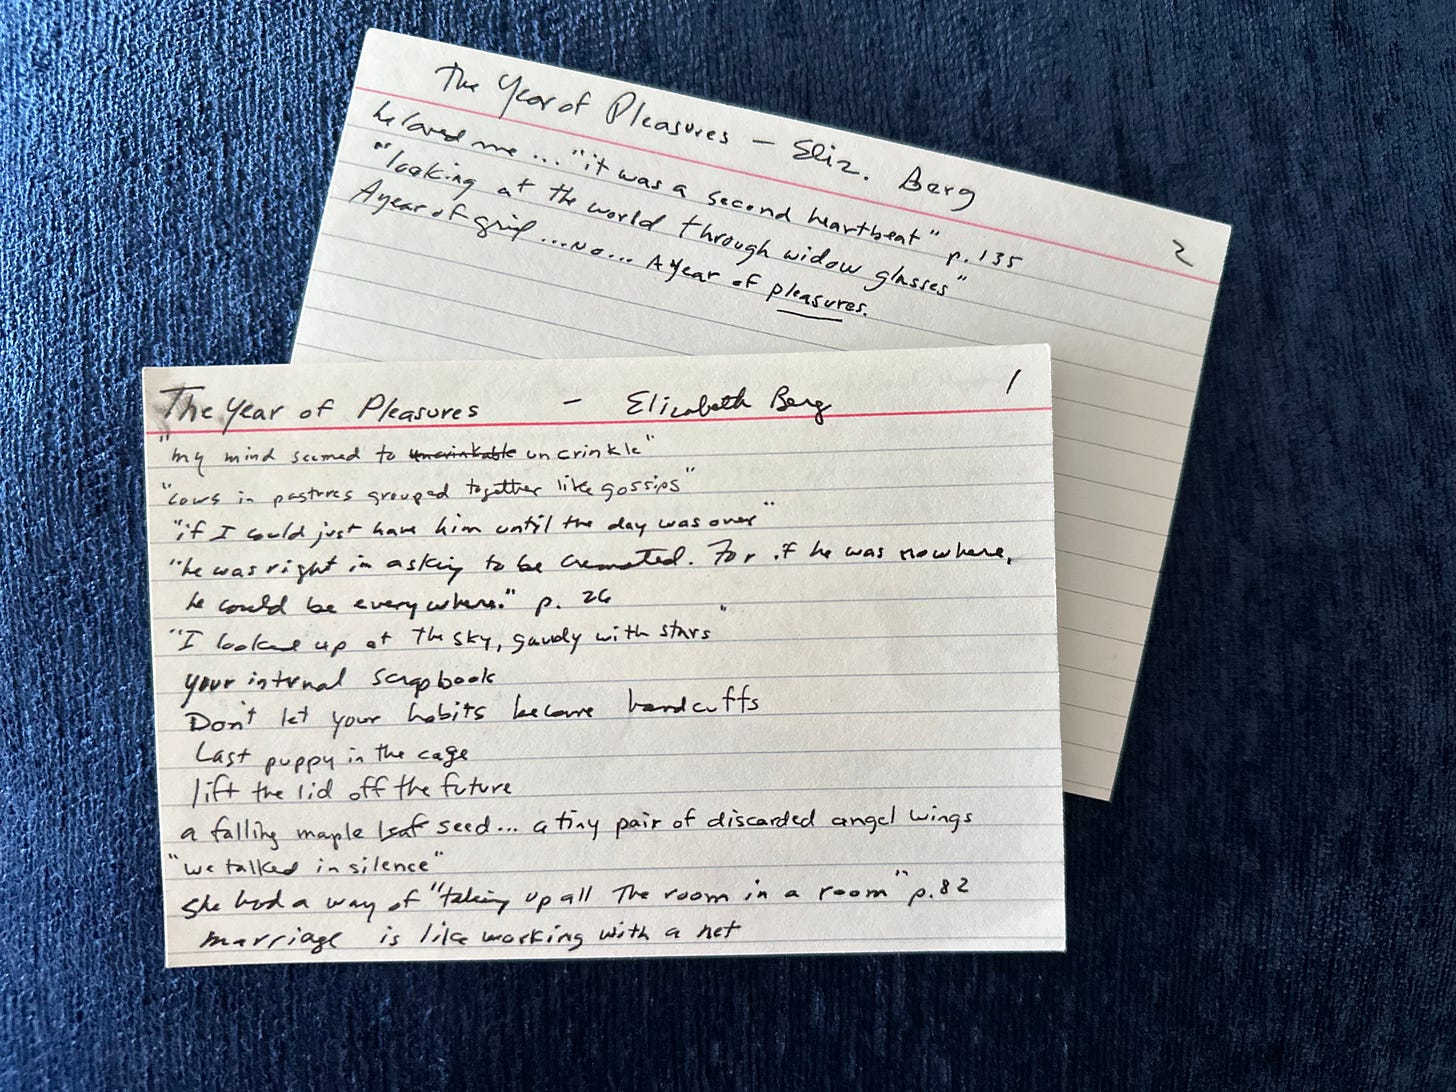 The Year of Pleasures – Eliz. Berg
2
he loved me ... "it was a second heartbeat" p. 135
"looking at the world through widow glasses"
A year of grief ... No ... A year of pleasures.
The Year of Pleasures – Elizabeth Berg
1
"my mind seemed to uncrinkle"
"cows in pastures grouped together like gossips"
"if I could just have him until the day was over"
"he was right in asking to be cremated. For if he was nowhere,
he could be everywhere." p. 26
"I looked up at the sky, gaudy with stars"
your internal scrapbook
Don't let your habits become handcuffs
Last puppy in the cage
lift the lid off the future
a falling maple leaf seed... a tiny pair of discarded angel wings
"we talked in silence"
She had a way of "taking up all the room in a room" p. 82
marriage is like working with a net